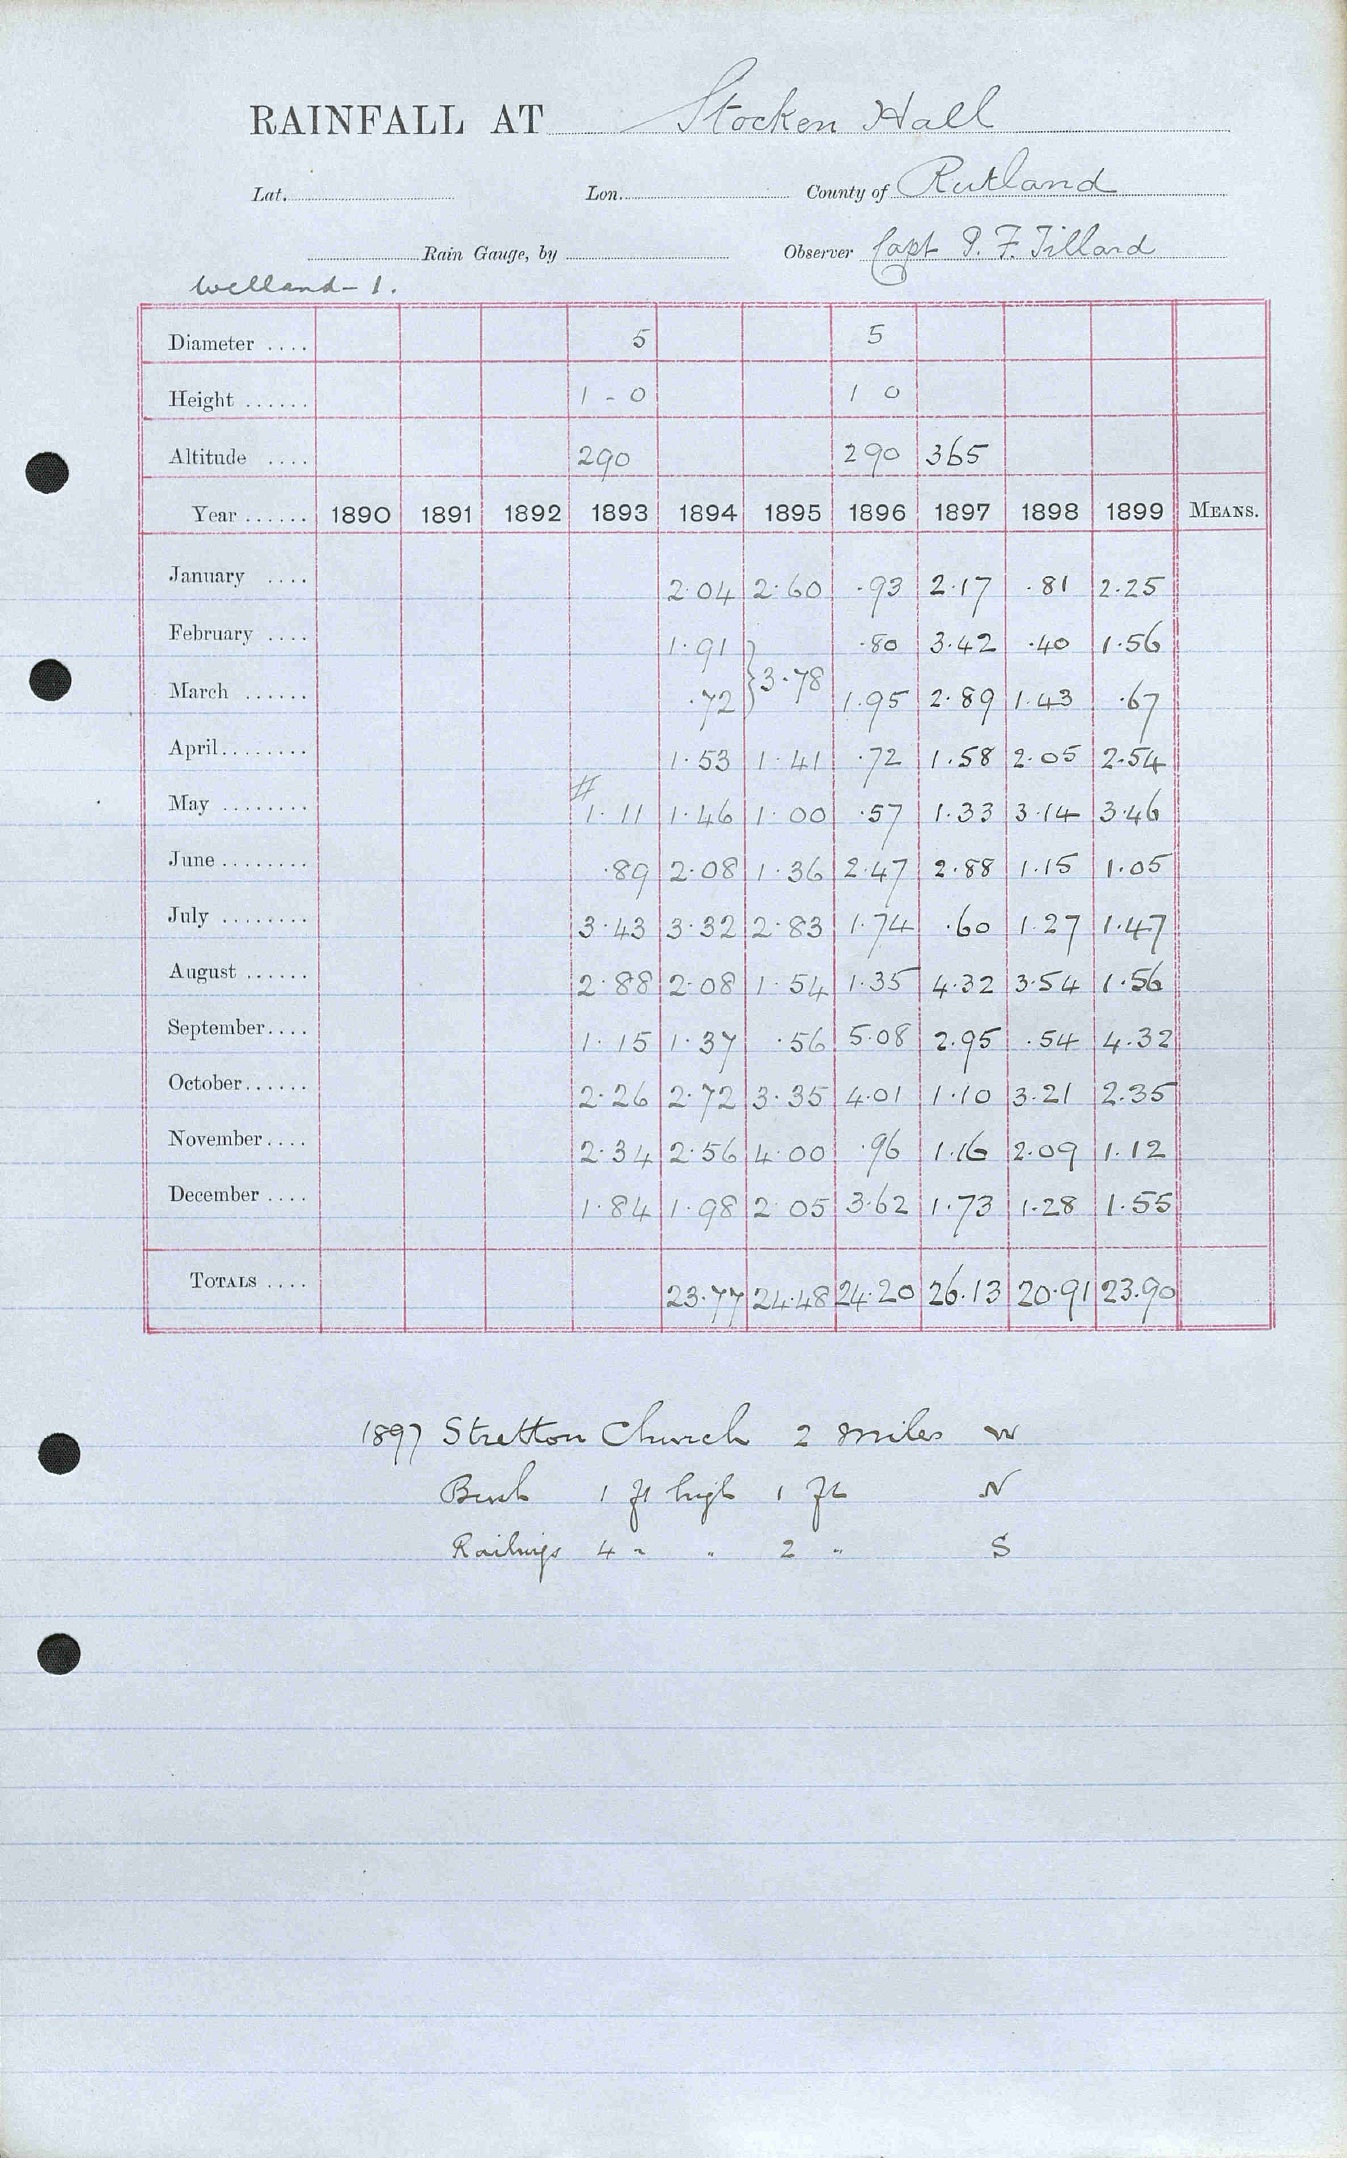 RAINFALL AT Stocken Hall
Lat. Lon. County of Rutland
Rain Gauge, by Observer Capt P. F. Tillard
Welland - 1.
Diameter .... 5 5
Height ...... 1 - 0 1 0
Altitude .... 290 290 365
Year ...... 1890 1891 1892 1893 1894 1895 1896 1897 1898 1899 MEANS.
January .... 2.04 2.60 .93 2.17 .81 2.25
February .... 1.91 .80 3.42 .40 1.56
} 3.78
March ...... .72 1.95 2.89 1.43 .67
April ........ 1.53 1.41 .72 1.58 2.05 2.54
May ........ # 1.11 1.46 1.00 .57 1.33 3.14 3.46
June ........ .89 2.08 1.36 2.47 2.88 1.15 1.05
July ........ 3.43 3.32 2.83 1.74 .60 1.27 1.47
August ...... 2.88 2.08 1.54 1.35 4.32 3.54 1.56
September.... 1.15 1.37 .56 5.08 2.95 .54 4.32
October...... 2.26 2.72 3.35 4.01 1.10 3.21 2.35
November.... 2.34 2.56 4.00 .96 1.16 2.09 1.12
December .... 1.84 1.98 2.05 3.62 1.73 1.28 1.55
TOTALS .... 23.77 24.48 24.20 26.13 20.91 23.90
1897 Stretton Church 2 miles W
Bush 1 ft high 1 ft N
Railings 4 " " 2 " S